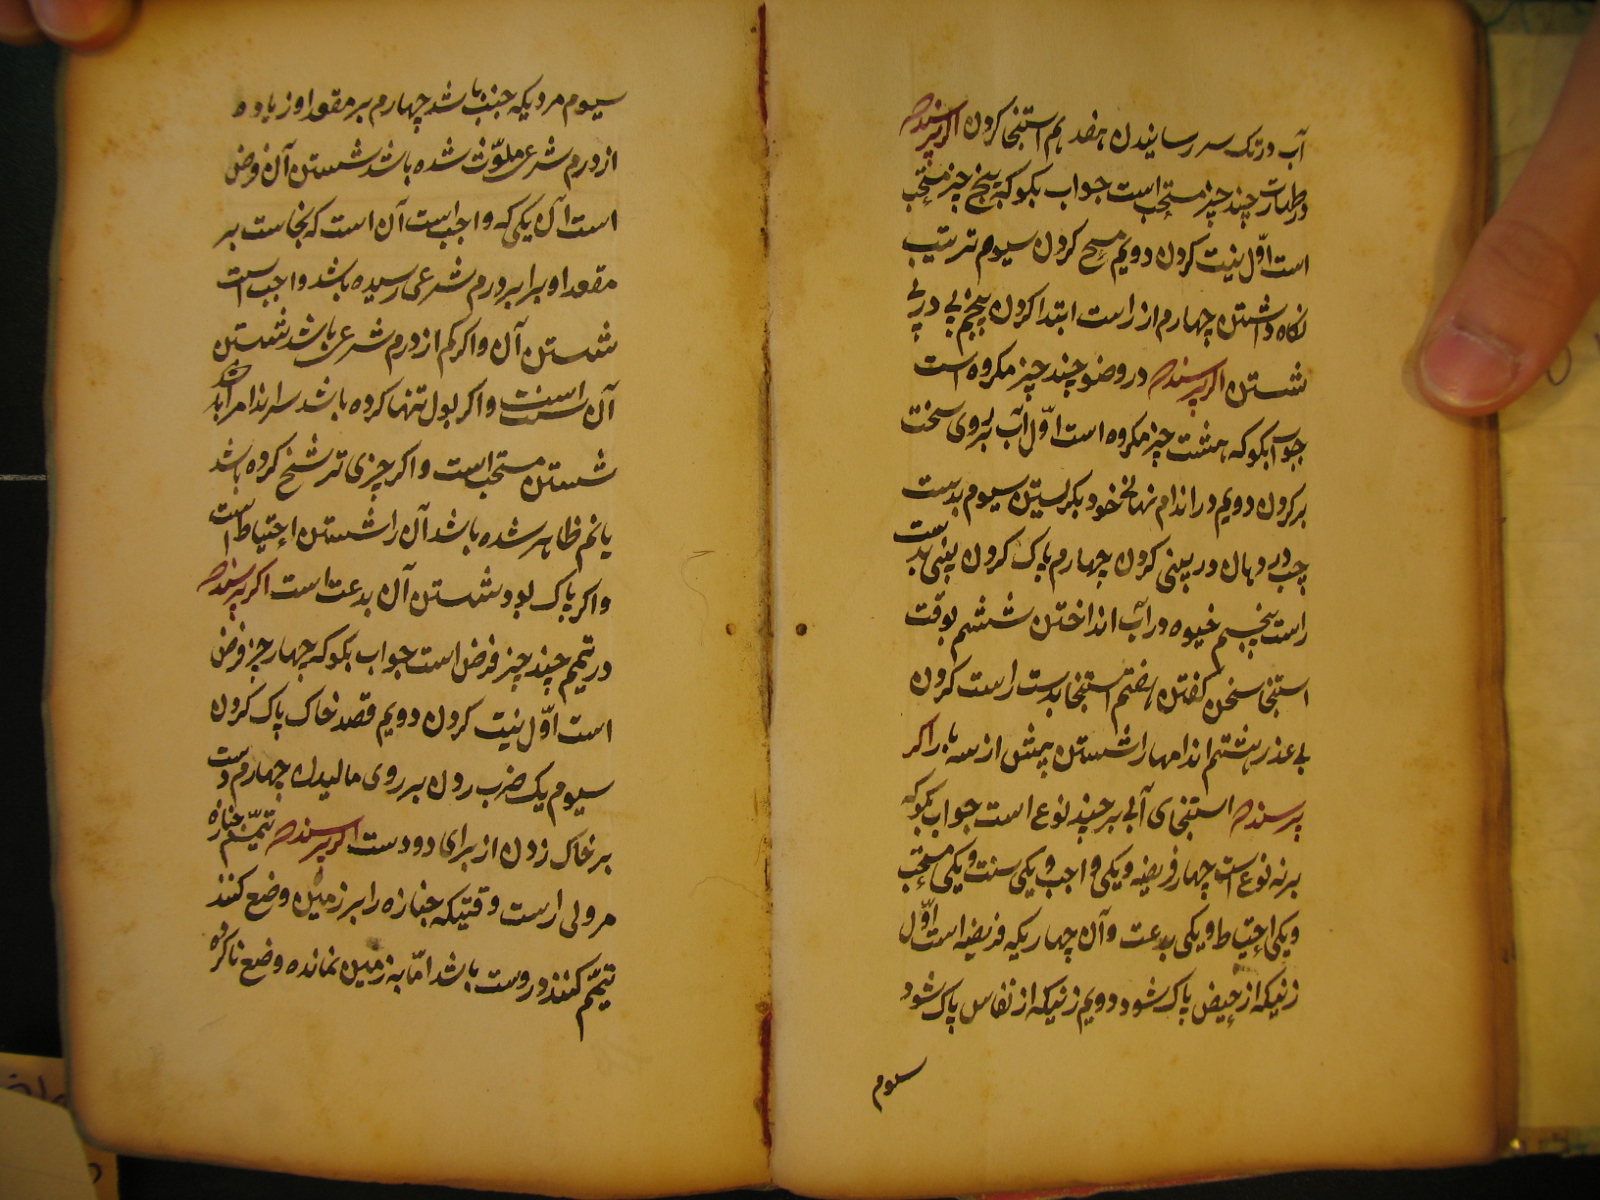 آب در تک سر رسانیدن هفدهم استنجا کردن اکر پرسند که
در طهارت چند چیز مستحب است جواب بکو که پنج چیز مستحب
است اوّل نیت کردن دویم مسح کردن سیوم ترتیب
نکاه داشتن چهارم از راست ابتدا کردن پنجم پی در پی
شستن اکر پرسند که در وضو چند چیز مکروه است
جواب بکو که هشت چیز مکروه است اوّل آب بر روی سخت
بر کردن دویم در اندام نهانی خود نکریستن سیوم بدست
چپ در دهان و در بینی کردن چهارم پاک کردن بینی بدست
راست پنجم خیوه در آب انداختن ششم بوقت
استنجا سخن کفتن هفتم استنجا بدست راست کردن
بی عذر هشتم اندامها را شستن پیش از سه بار اکر
پرسند که استنجای آبی بر چند نوع است جواب بکو که
بر نه نوع است چهار فریضه و یکی واجب و یکی سنت و یکی مستحب
و یکی احتیاط و یکی بدعت و آن چهاریکه فریضه است اوّل
زنیکه از حیض پاک شود دویم زنیکه از نفاس پاک شود
سیوم
سیوم مردیکه جنب باشد چهارم بر مقعد او زیاده
از درم شرعی ملوّث شده باشد شستن آن فرض
است آن یکی که واجب است آن است که نجاست بر
مقعد او برابر درم شرعی رسیده باشد واجب است
شستن آن و اکر کم از درم شرعی باشد شستن
آن سنت است و اکر بول تنها کرده باشد سر اندام را
شستن مستحب است و اکر چیزی ترشح کرده باشد
یا نم ظاهر شده باشد آن را شستن احتیاط است
و اکر پاک بود شستن آن بدعت است اکر پرسند که
در تیمم چند چیز فرض است جواب بکو که چهار چیز فرض
است اوّل نیت کردن دویم قصد خاک پاک کردن
سیوم یک ضرب زدن بر روی مالیدن چهارم دست
بر خاک زدن از برای دو دست اکر پرسند که تیمّم جنازه
مر ولی را رست وقتیکه جنازه را بر زمین وضع کنند
تیمّم کنند درست باشد امّا به زمین نمانده وضع ناکرده